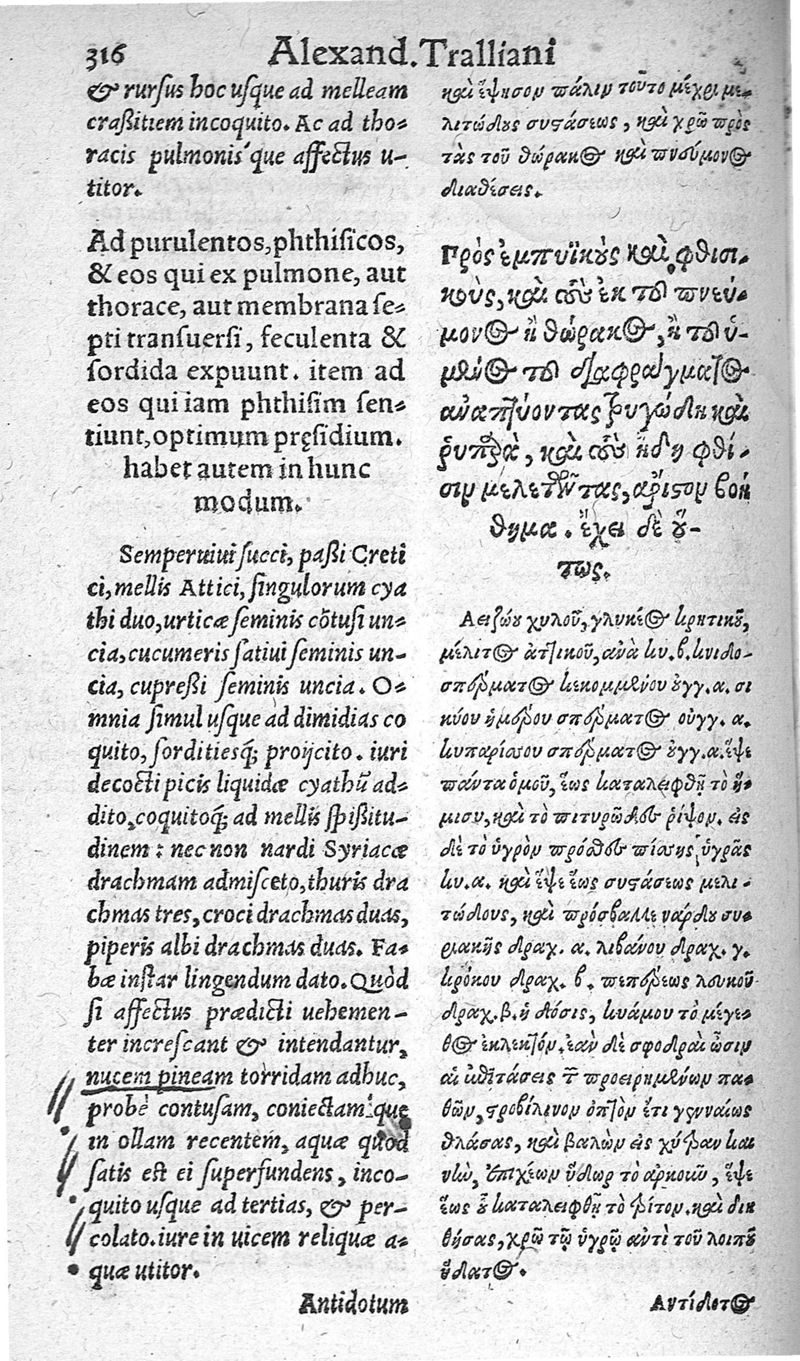 316 Alexand. Tralliani
& rursus hoc usque ad melleam
crassitiem incoquito. Ac ad tho-
racis pulmonis'que affectus u-
titor.
Ad purulentos, phthisicos,
& eos qui ex pulmone, aut
thorace, aut membrana se-
pti transuersi, feculenta &
sordida expuunt. item ad
eos qui iam phthisim sen-
tiunt, optimum pręsidium.
habet autem in hunc
modum.
Semperuiui succi, passi Creti
ci, mellis Attici, singulorum cya
thi duo, urticæ seminis cõtusi un-
cia, cucumeris satiui seminis un-
cia, cupressi seminis uncia. O-
mnia simul usque ad dimidias co
quito, sorditiesq; proijcito. iuri
decocti picis liquidæ cyathũ ad-
dito, coquitoq; ad mellis spissitu-
dinem: nec non nardi Syriacæ
drachmam admisceto, thuris dra
chmas tres, croci drachmas duas,
piperis albi drachmas duas. Fa-
bæ instar lingendum dato. Quòd
si affectus prædicti uehemen-
ter increscant & intendantur,
nucem pineam torridam adhuc,
probè contusam, coniectam'que
in ollam recentem, aquæ quod
satis est ei superfundens, inco-
quito usque ad tertias, & per-
colato. iure in uicem reliquæ a-
quæ utitor.
Antidotum
καὶ ἕψησον πάλιν τοῦτο μέχρι με-
λιτώδους συστάσεως, καὶ χρῶ πρὸς
τὰς τοῦ θώρακος καὶ πνεύμονος
διαθέσεις.
Πρὸς ἐμπυϊκοὺς καὶ φθισι-
κοὺς, καὶ τοὺς ἐκ τοῦ πνεύ-
μονος ἢ θώρακος, ἢ τοῦ ὑ-
μένος τοῦ διαφράγματος
ἀναπτύοντας τρυγώδη καὶ
ῥυπαρὰ, καὶ τοὺς ἤδη φθί-
σιν μελετῶντας, ἄριστον βοή
θημα. ἔχει δὲ οὕ-
τως.
Ἀειζώου χυλοῦ, γλυκέος κρητικοῦ,
μέλιτος ἀττικοῦ, ἀνὰ κυ. β. κνιδο-
σπέρματος κεκομμένου οὐγγ. α. σι
κύου ἡμέρου σπέρματος οὐγγ. α.
κυπαρίσσου σπέρματος οὐγγ. α. ἕψε
πάντα ὁμοῦ, ἕως καταλειφθῇ τὸ ἥ-
μισυ, καὶ τὸ πιτυρῶδες ῥίψον. εἰς
δὲ τὸ ὑγρὸν πρόσθες πίσσης ὑγρᾶς
κυ. α. καὶ ἕψε ἕως συστάσεως μελι-
τώδους, καὶ πρόσβαλλε νάρδου συ-
ριακῆς δραχ. α. λιβάνου δραχ. γ.
κρόκου δραχ. β. πεπέρεως λευκοῦ
δραχ. β. ἡ δόσις, κυάμου τὸ μέγε-
θος ἐκλεικτόν. ἐὰν δὲ σφοδραὶ ὦσιν
αἱ ἐπιτάσεις τῶν προειρημένων πα-
θῶν, στροβίλινον ὀπτὸν ἔτι γενναίως
θλάσας, καὶ βαλὼν εἰς χύτραν και
νὴν, ἐπιχέων ὕδωρ τὸ ἀρκοῦν, ἕψε
ἕως οὗ καταλειφθῇ τὸ τρίτον. καὶ διη
θήσας, χρῶ τῷ ὑγρῷ ἀντὶ τοῦ λοιποῦ
ὕδατος.
Ἀντίδοτος